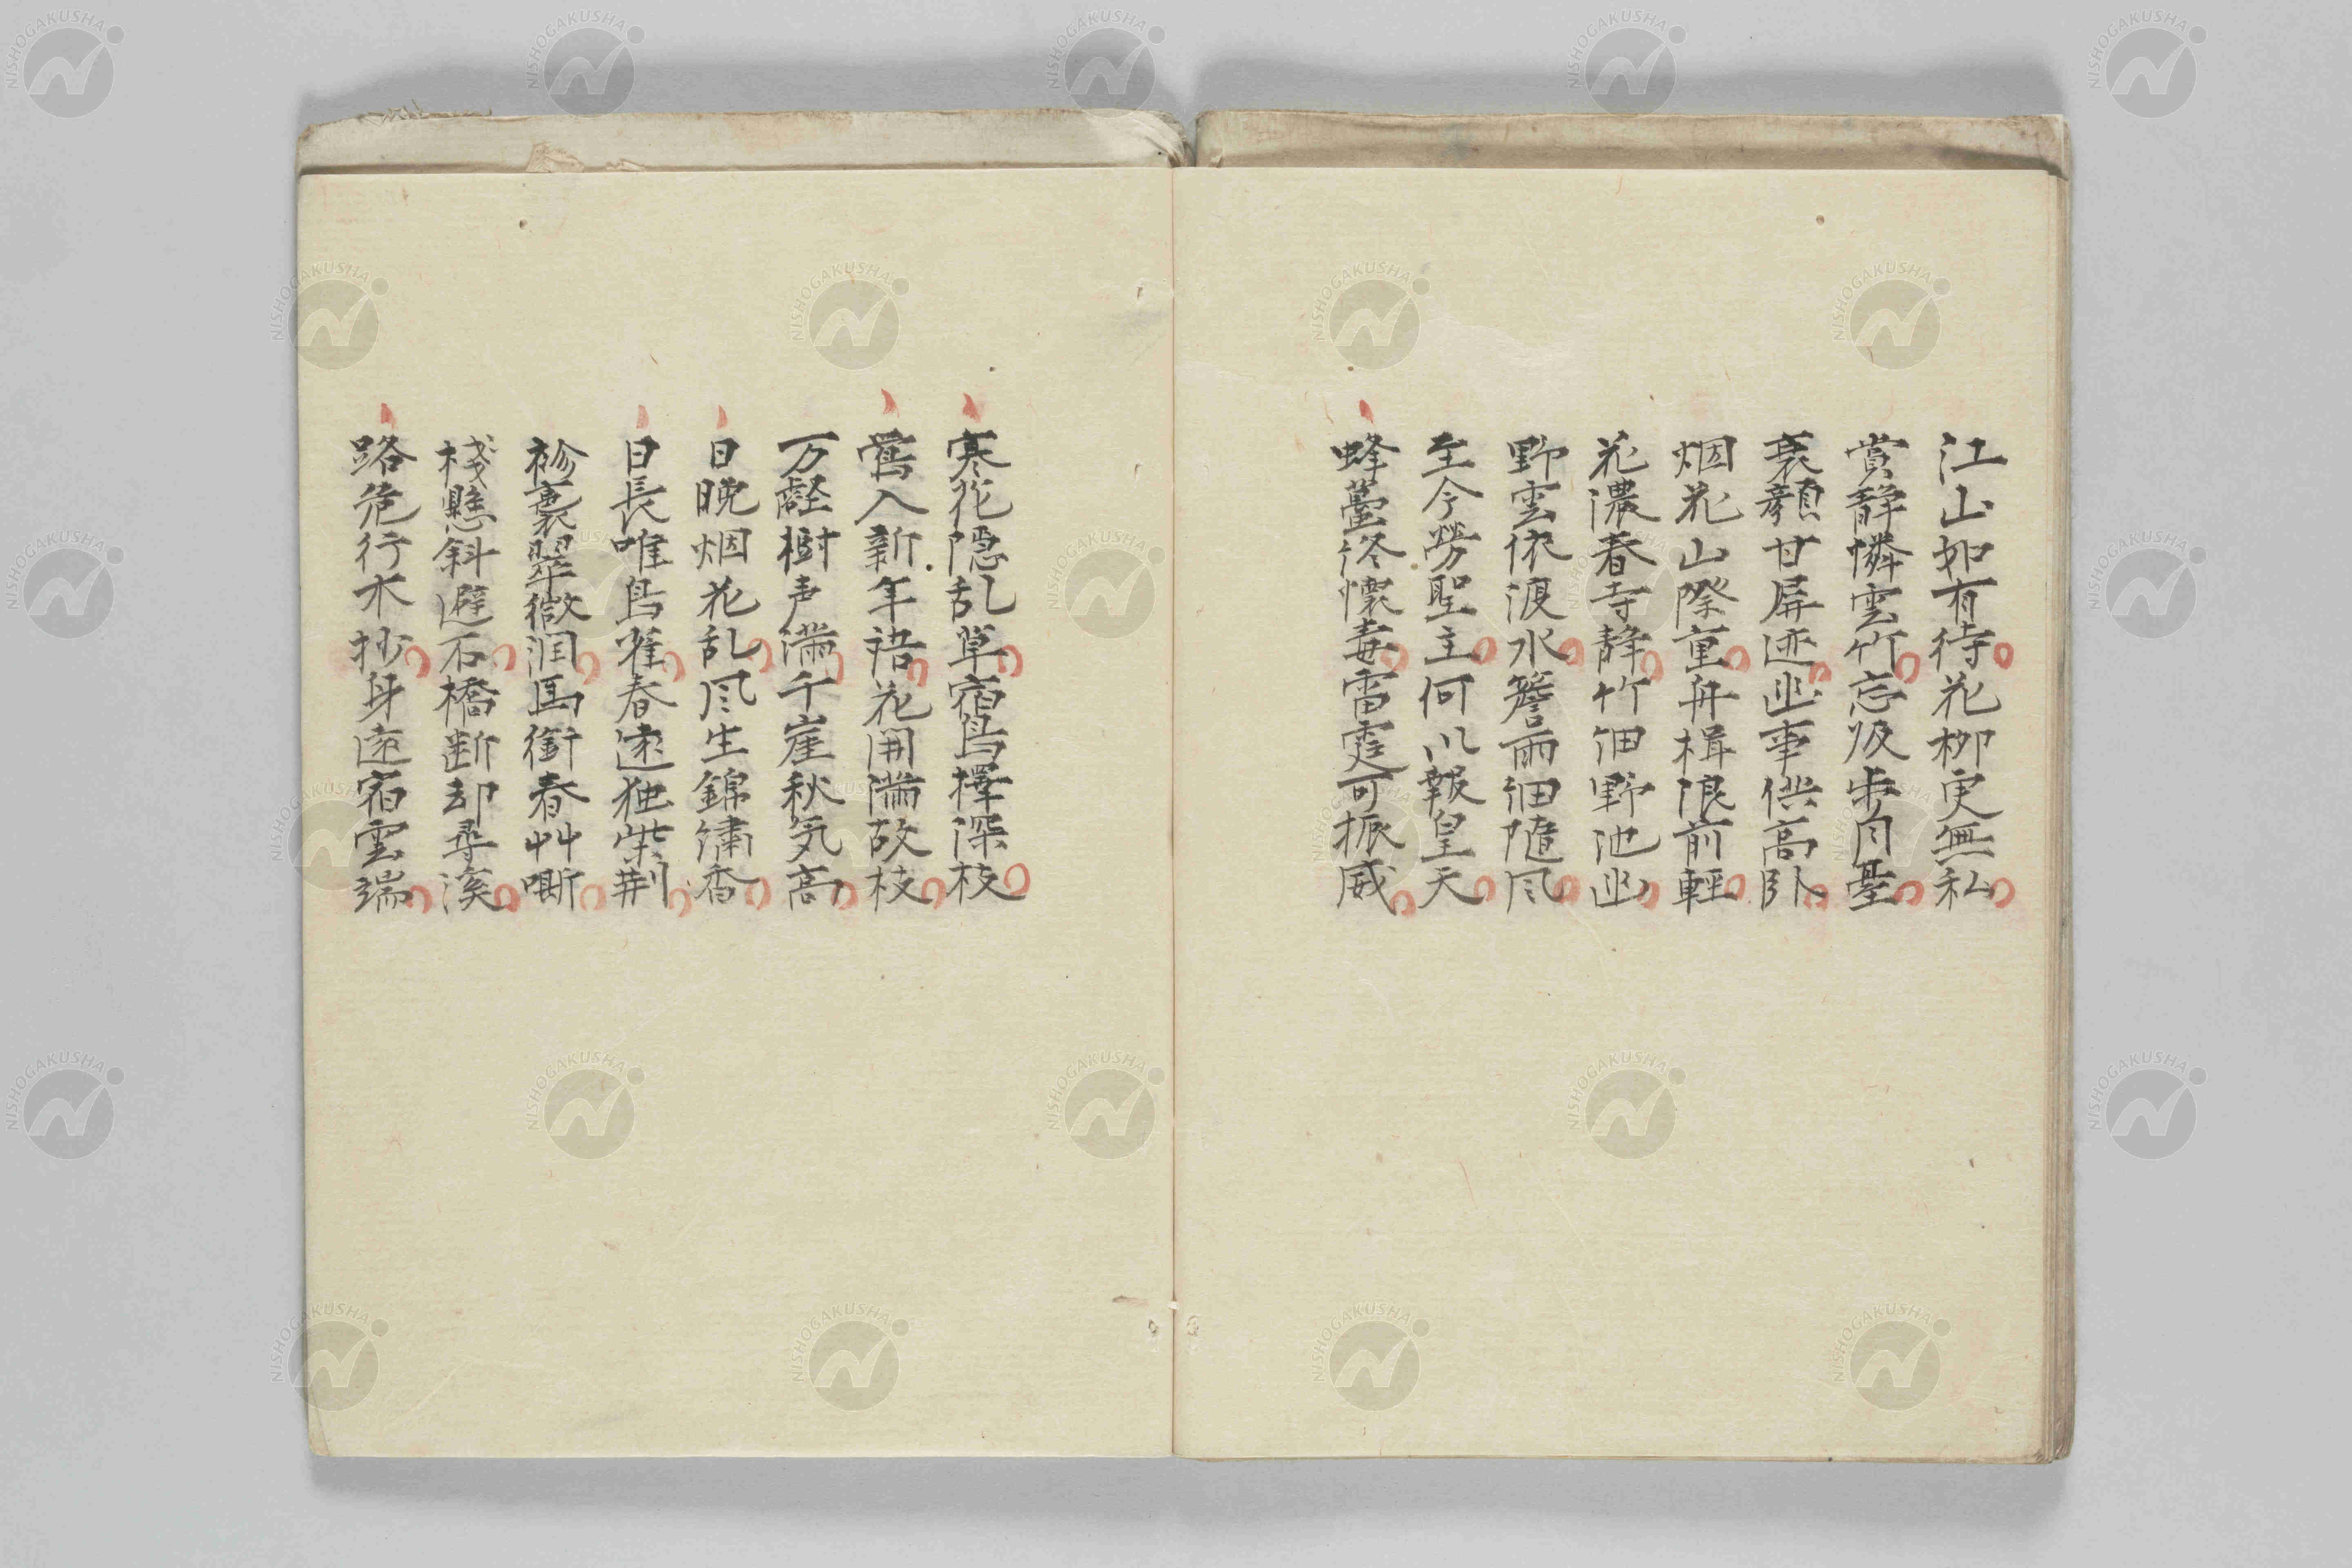 江山如有待花柳更無私
賞静憐雲竹忘皈歩月臺
衰顔甘屏迹幽事供高卧
烟花山際重舟楫浪前輕
花濃春寺静竹細野池幽
野雲依渡水簷雨細随风
至今勞聖主何以報皇天
蜂蠆终懷毒雷霆可振威
寒花隠乱草宿鳥擇深枝
鶯入新年語花開満故枝
万壑樹声满千崖秋気高
日晚烟花乱风生錦繡香
日長唯鳥雀春遠独柴荆
衫裛翠微润馬衔春艸嘶
棧懸斜避石橋断却尋溪
路危行木杪身遠宿雲端
NISHOGAKUSHA